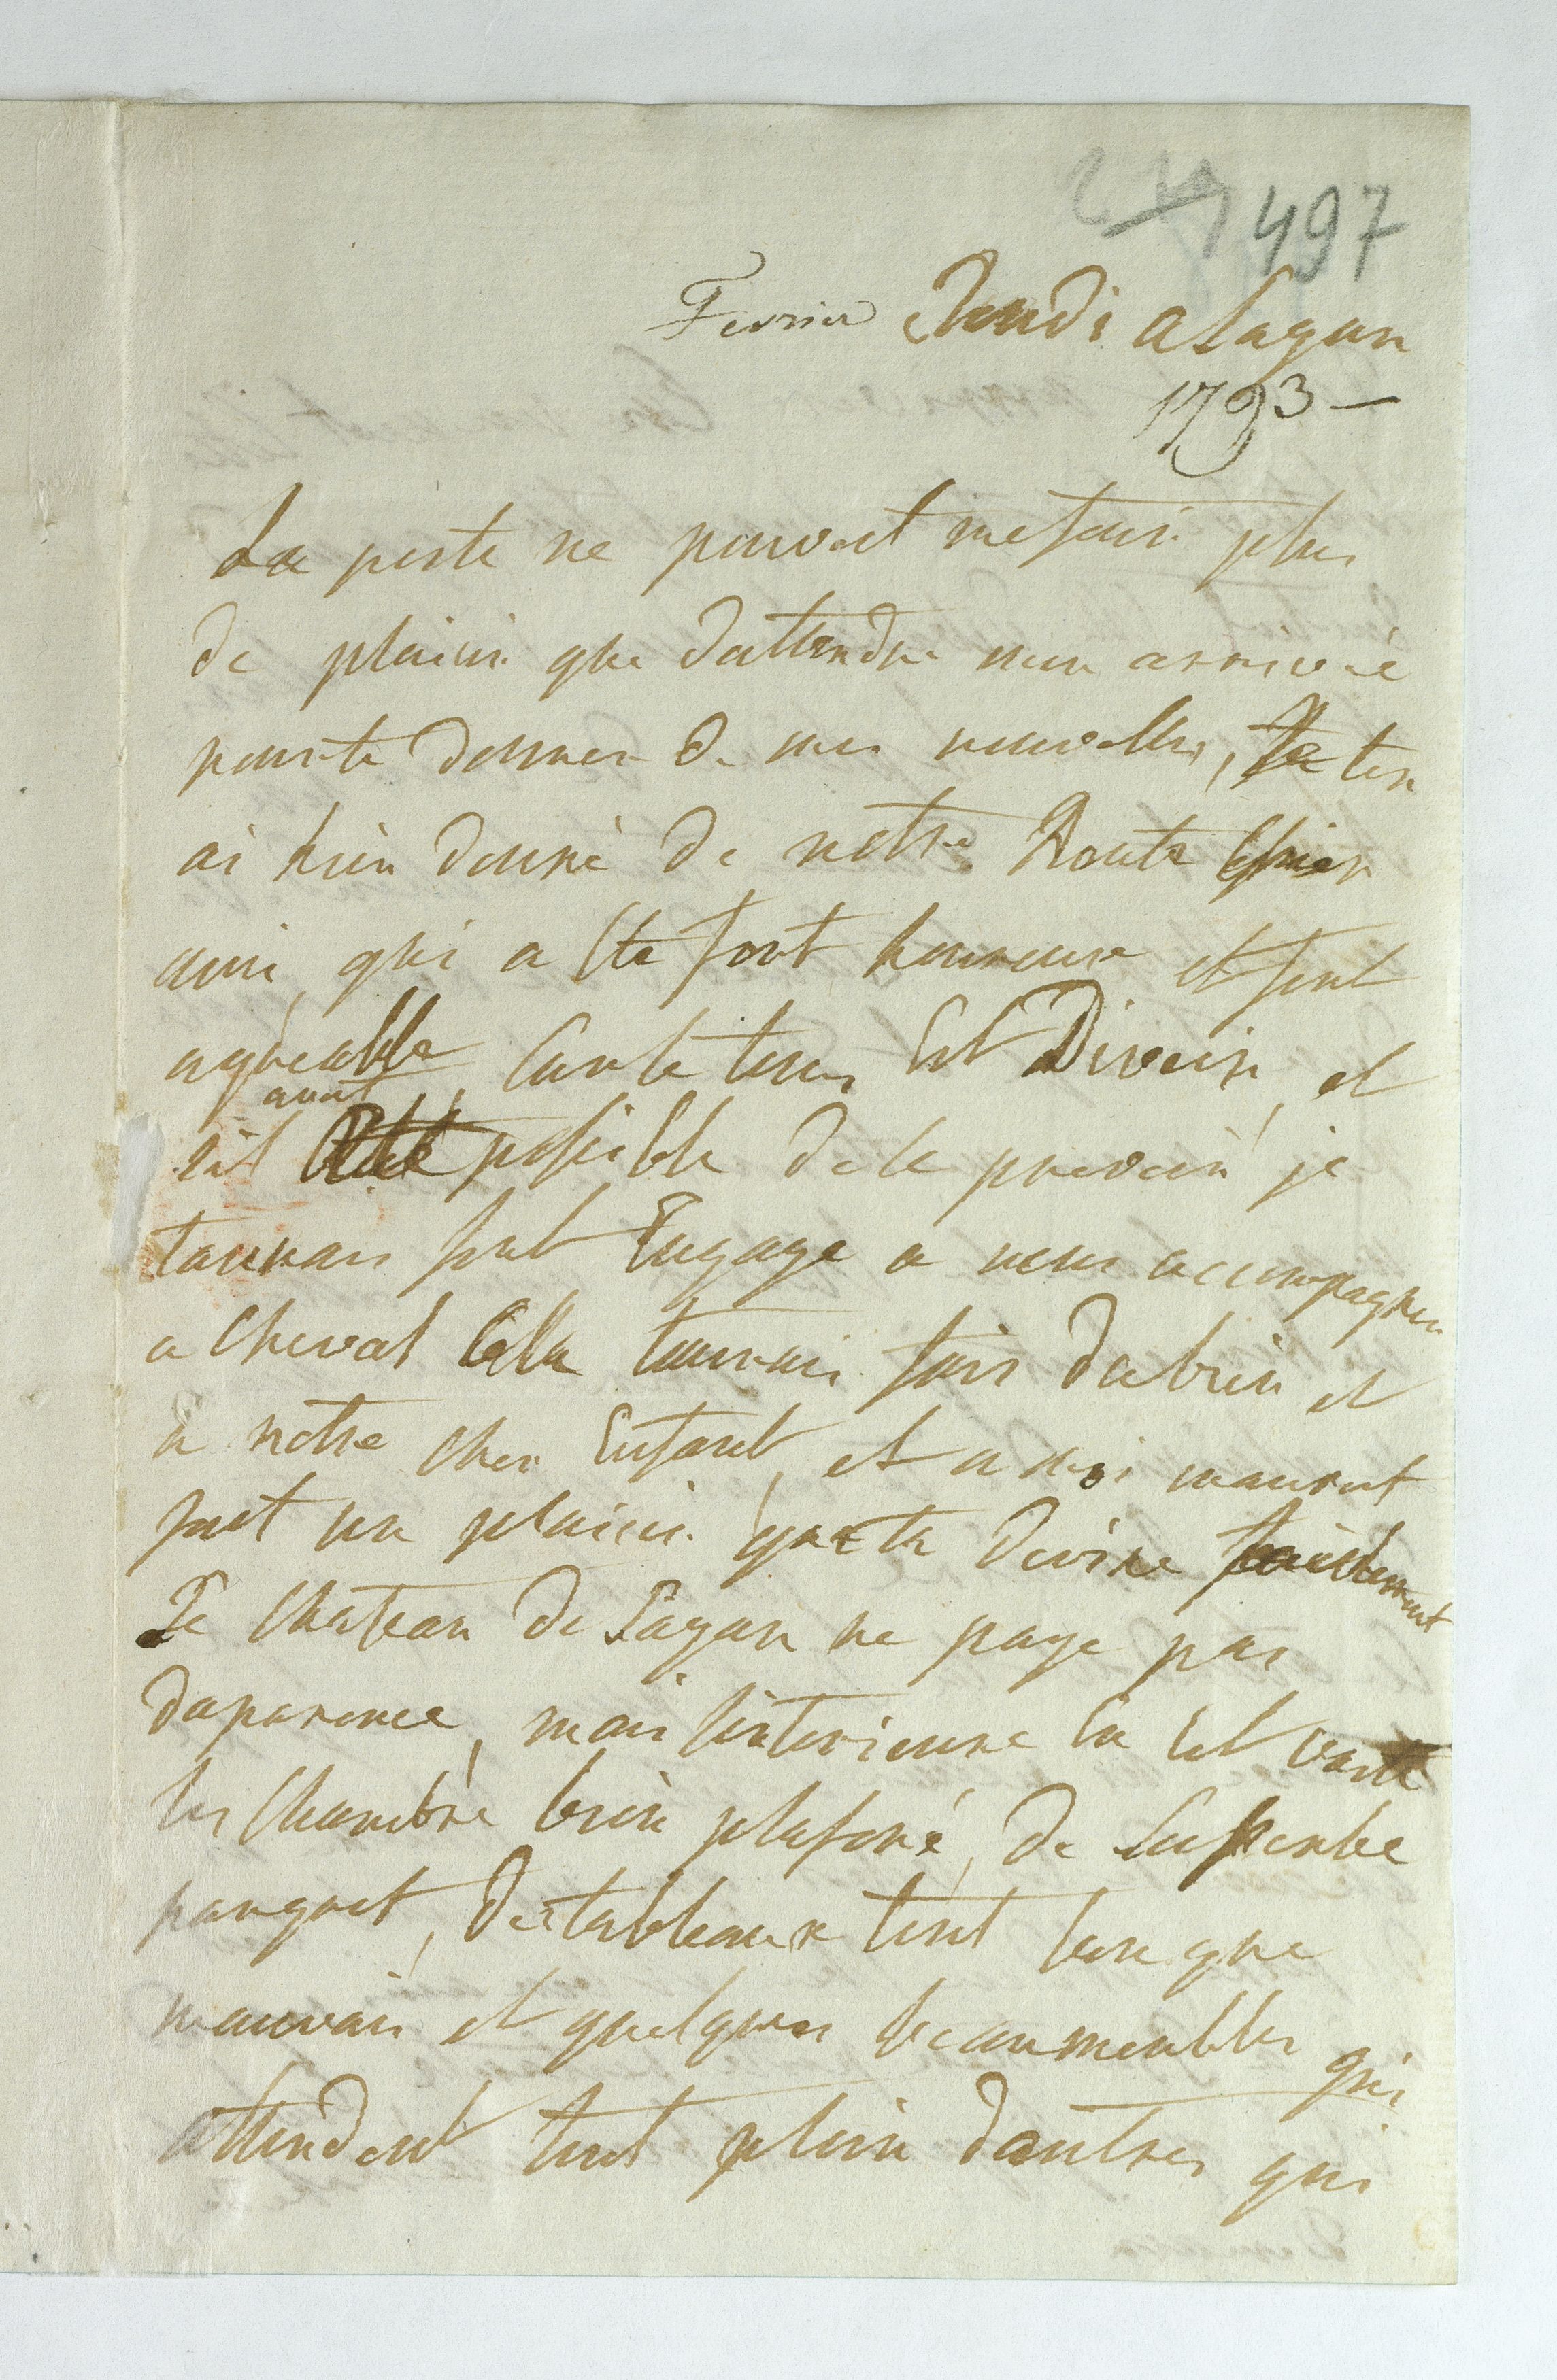 497
Fevrier Jeudi a Sagan
1793 —
La poste ne pouvoit me faire plus
de plaisir que dattendre mon arrivée
pour te donner de mes nouvelles, Je ten
ai bien donné de notre Route
ami, qui a Ete fort heureuse et fort
agréable, Car le tems Est Divin, et
sil avait possible de le prevoir je
taurais fort Engage a nous accompagner
a Cheval Cela taurais fais du bien et
a notre cher Enfant, et a moi mauroit
fait un plaisir que tu devine
Le Chateau de Sagan ne paye pas
daparence, mais linterieure En Est vaste
les Chambre bien plafoné, de Superbe
parquet, des tableaux tant bon que
mauvais et quelques beau meubles qui
attendent tout plein dautres qui